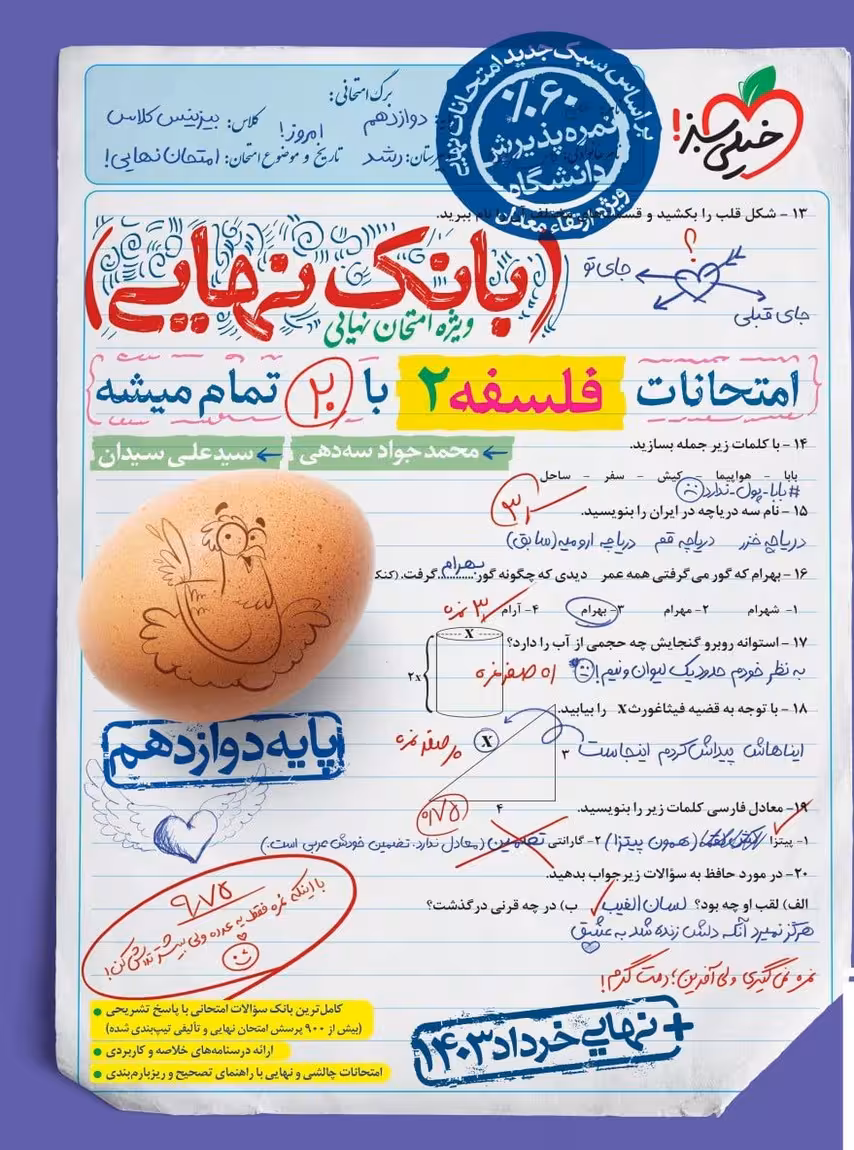 برگ امتحانی:
دوازدهم
امروز!
کلاس: بیزینس کلاس
رشد
تاریخ و موضوع امتحان: امتحان نهایی!
براساس سبک جدید امتحانات نهایی
۶۰٪
نمره پذیرش
دانشگاه
ویژه ارتقاء معدل
خیلی سبز!
۱۳ - شکل قلب را بکشید و قسمت‌های مختلف آن را نام ببرید.
؟
جای تو
جای قبلی
(بانک نهایی)
ویژه امتحان نهایی
امتحانات فلسفه ۲ با ۲۰ تمام میشه
محمد جواد سه‌دهی
سیدعلی سیدان
۱۴ - با کلمات زیر جمله بسازید.
بابا - هواپیما - کیش - سفر - ساحل
#بابا-پول-ندارد
۱۵ - نام سه دریاچه در ایران را بنویسید.
دریاچه خزر دریاچه قم دریاچه ارومیه (سابق)
۱۶ - بهرام که گور می‌گرفتی همه عمر دیدی که چگونه گور بهرام گرفت. (کنک
۱- شهرام ۲- مهرام ۳- بهرام ۴- آرام
۳ نمره
۱۷ - استوانه روبرو گنجایش چه حجمی از آب را دارد؟
X
۲x
به نظر خودم حدود یک لیوان و نیم!
صفر نمره
۱۸ - با توجه به قضیه فیثاغورث X را بیابید.
X
۳
۴
ایناهاش پیداش کردم اینجاست
صفر نمره
۰/۷۵
پایه دوازدهم
۱۹ - معادل فارسی کلمات زیر را بنویسید.
۱- پیتزا (همون پیتزا) ۲- گارانتی تضمین (معادل ندارد. تضمین خودش عربی است.)
۲۰ - در مورد حافظ به سؤالات زیر جواب بدهید.
الف) لقب او چه بود؟ لسان الغیب ب) در چه قرنی درگذشت؟
هرگز نمیرد آنکه دلش زنده شد به عشق
نمره نمی‌گیری ولی آفرین؛ دمت گرم!
۹/۷۵
با اینکه نمره فقط یه عدده ولی بیشتر تلاش کن!
کامل‌ترین بانک سؤالات امتحانی با پاسخ تشریحی
(بیش از ۹۰۰ پرسش امتحان نهایی و تألیفی تیپ‌بندی شده)
ارائه درسنامه‌های خلاصه و کاربردی
امتحانات چالشی و نهایی با راهنمای تصحیح و ریزبارم‌بندی
+ نهایی خرداد ۱۴۰۳